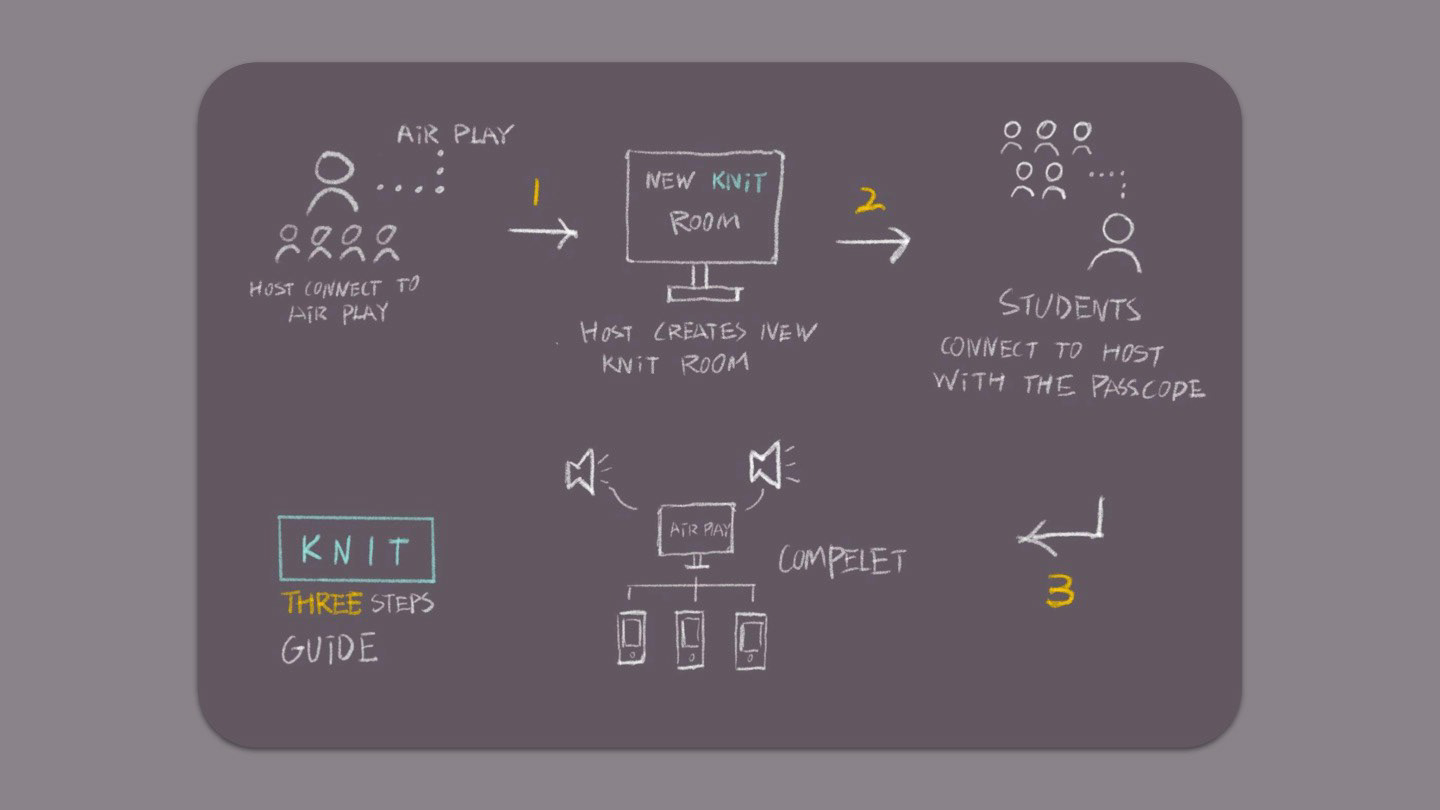 AiR PLAY
HOST CONNECT TO
AiR PLAY
1
NEW KNiT
ROOM
HOST CREATES NEW
KNiT ROOM
2
STUDENTS
CONNECT TO HOST
WiTH THE PASSCODE
3
AiR PLAY
COMPELET
KNIT
THREE STEPS
GUiDE